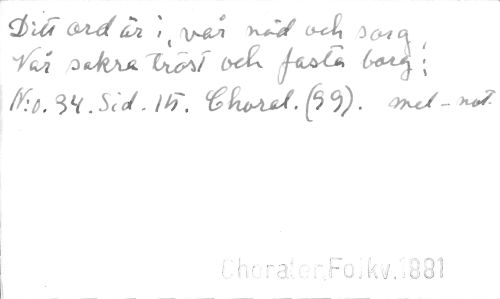 Ditt ord är i, vår nöd och sorg,
Vår säkra tröst och fasta borg;
N:o. 34. Sid. 15. Choral. (99). mel-not.
Choraler, Folkv, 1881